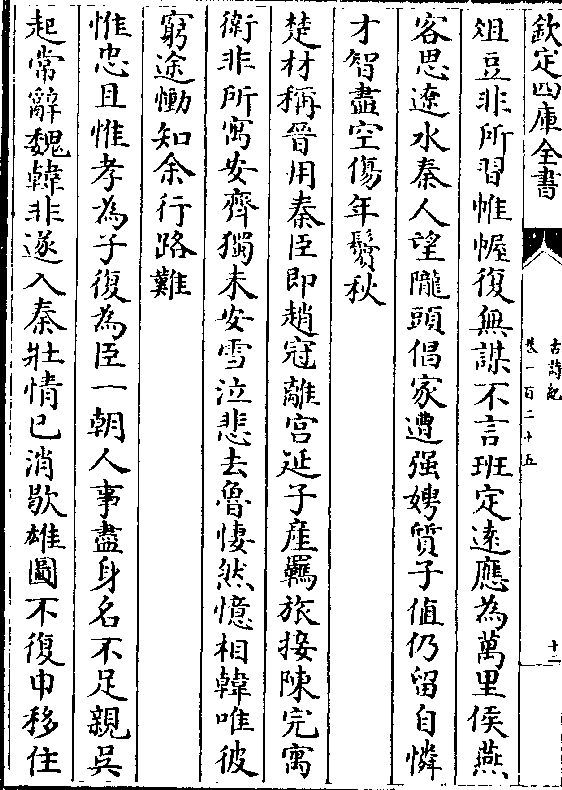 欽定四庫全書
古詩紀
卷一百二十五
十二
俎豆非所習帷幄復無謀不言班定遠應為萬里侯燕
客思遼水秦人望隴頭倡家遭强娉質子值仍留自憐
才智盡空傷年鬢秋
楚材稱晉用秦臣即趙冠離宫延子産羈旅接陳完寓
衛非所寓安齊獨未安雪泣悲去魯悽然憶相韓唯彼
窮途慟知余行路難
惟忠且惟孝為子復為臣一朝人事盡身名不足親吳
起常辭魏韓非遂入秦壯情已消歇雄圖不復申移住